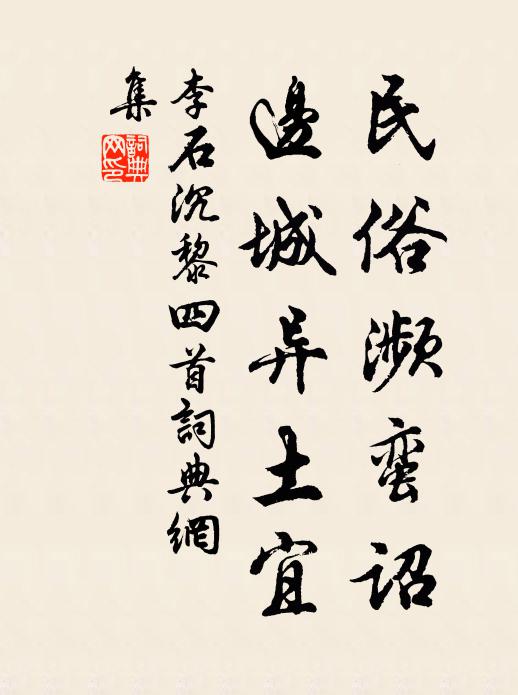 民俗濒蛮诏
邊城异土宜
李石沉黎四首詞典網
集
詞典網印